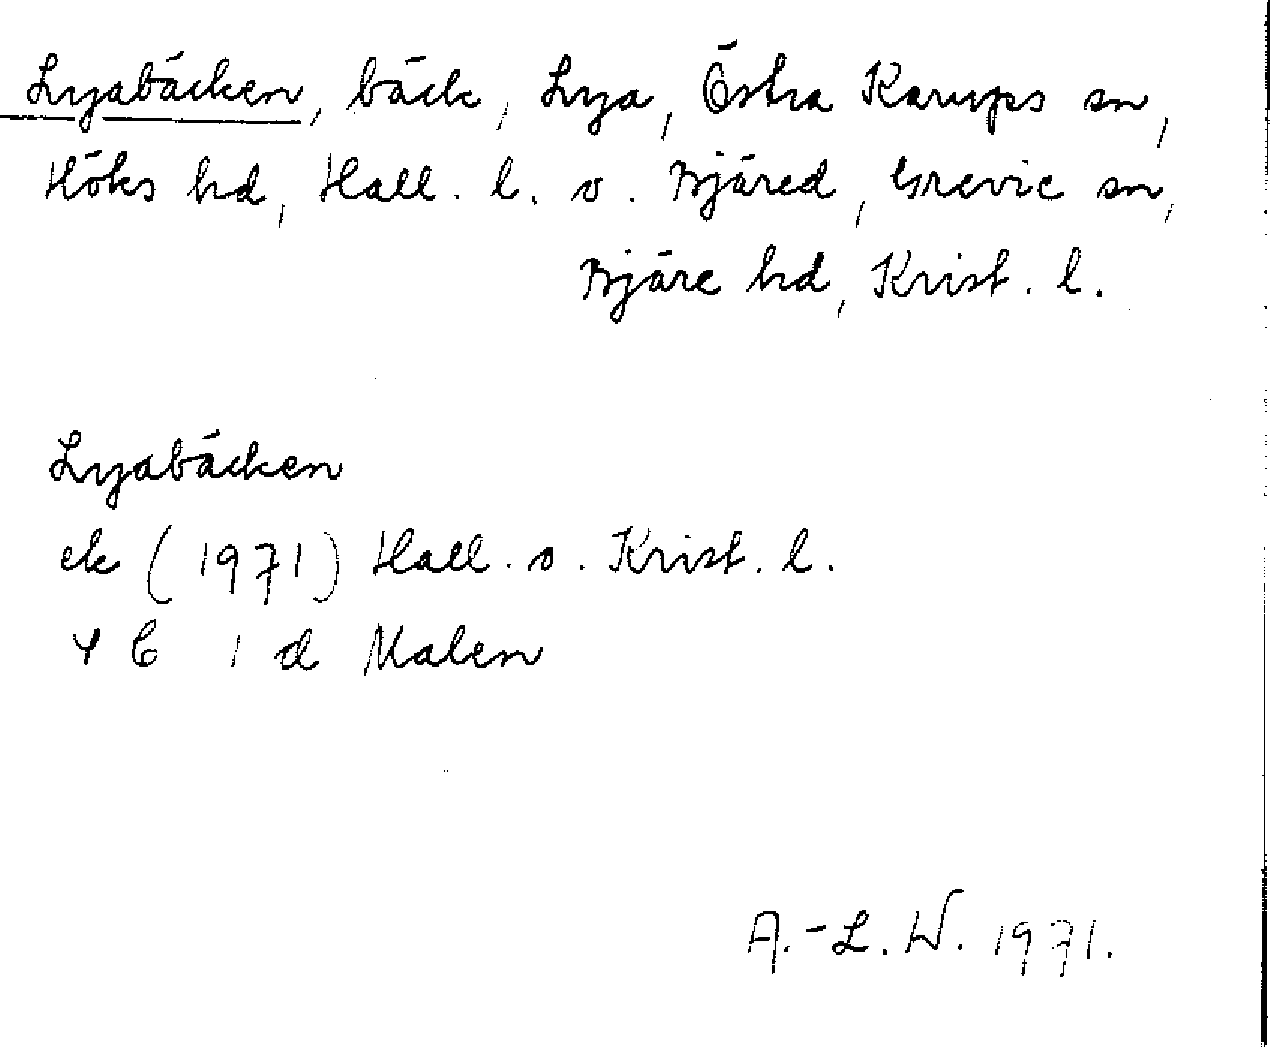 Lyabäcken, bäck, Lya, Östra Karups sn,
Höks hd, Hall. l. o. Bjäred, Grevie sn,
Bjäre hd, Krist. l.
Lyabäcken
ek (1971) Hall. o. Krist. l.
4 C 1 d Malen
A.-L. W. 1971.